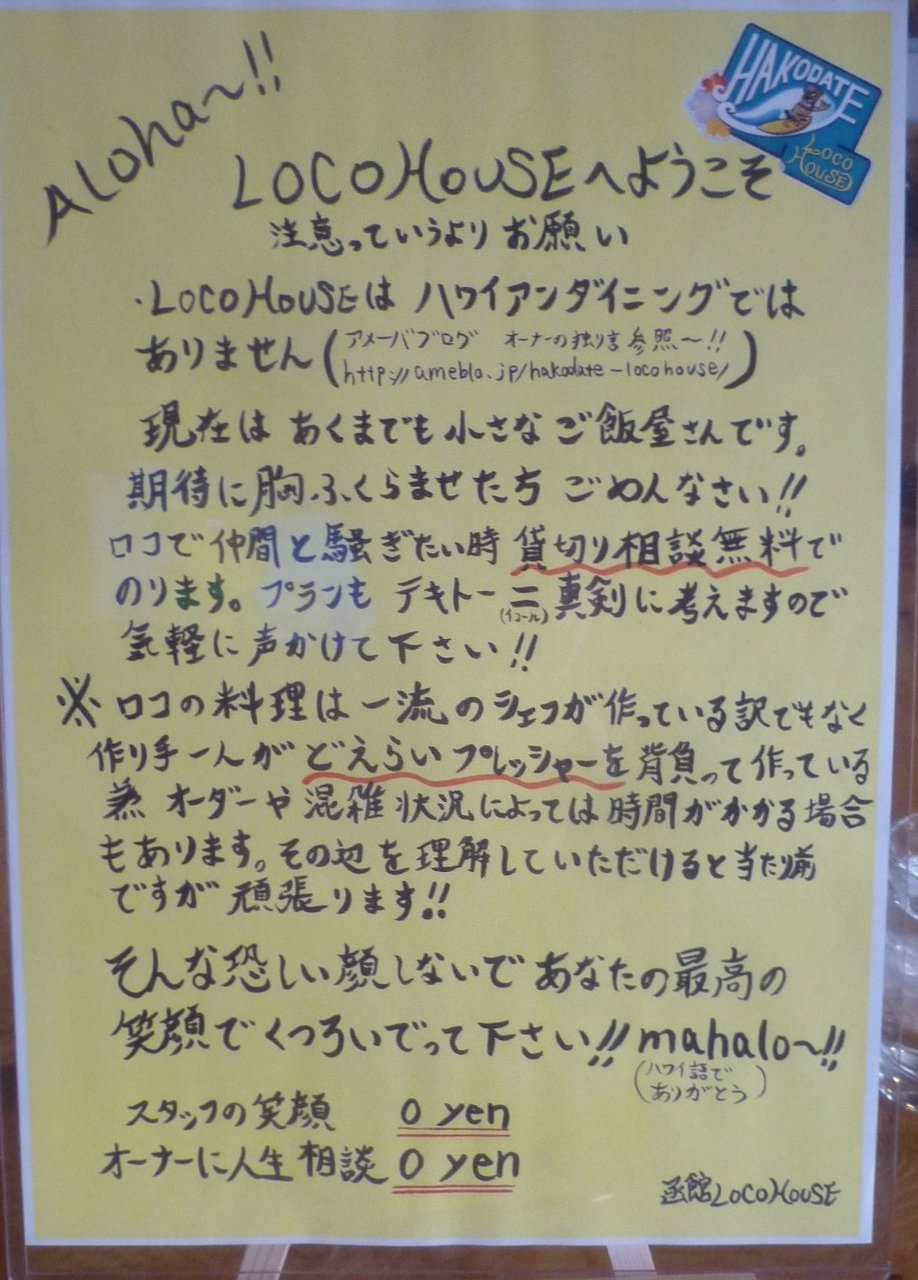 Aloha～!!
HAKODATE
LOCO
HOUSE
LOCOHOUSEへようこそ
注意っていうより お願い
・LOCOHOUSEは ハワイアンダイニングでは
ありません(アメーバブログ オーナーの独り言 参照～!!
http://ameblo.jp/hakodate-locohouse/)
現在は あくまでも 小さな ご飯屋さんです。
期待に胸ふくらませた方 ごめんなさい!!
ロコで仲間と騒ぎたい時 貸切り相談無料で
のります。プランも テキトー = 真剣に考えますので
(イコール)
気軽に声かけて下さい!!
※ ロコの料理は一流のシェフが作っている訳でもなく
作り手一人が どえらいプレッシャーを背負って作っている
為 オーダーや混雑状況によっては時間がかかる場合
もあります。その辺を理解していただけると当たり前
ですが 頑張ります!!
そんな恐しい顔しないで あなたの最高の
笑顔でくつろいでって下さい!! mahalo～!!
(ハワイ語で
ありがとう)
スタッフの笑顔 0 yen
オーナーに人生相談 0 yen
函館LOCOHOUSE